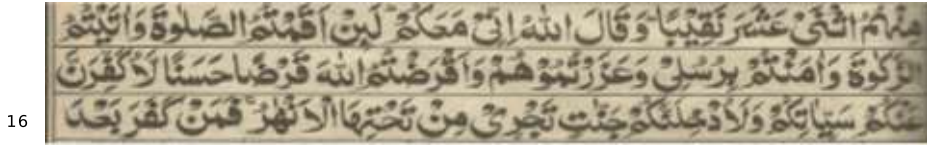 مِنْهُمُ اثْنَیْ عَشَرَ نَقِیْبًا ؕ وَ قَالَ اللّٰهُ اِنِّیْ مَعَكُمْ ؕ لَىِٕنْ اَقَمْتُمُ الصَّلٰوةَ وَ اٰتَیْتُمُ
الزَّكٰوةَ وَ اٰمَنْتُمْ بِرُسُلِیْ وَ عَزَّرْتُمُوْهُمْ وَ اَقْرَضْتُمُ اللّٰهَ قَرْضًا حَسَنًا لَّاُكَفِّرَنَّ
عَنْكُمْ سَیِّاٰتِكُمْ وَ لَاُدْخِلَنَّكُمْ جَنّٰتٍ تَجْرِیْ مِنْ تَحْتِهَا الْاَنْهٰرُ ۚ فَمَنْ كَفَرَ بَعْدَ
16